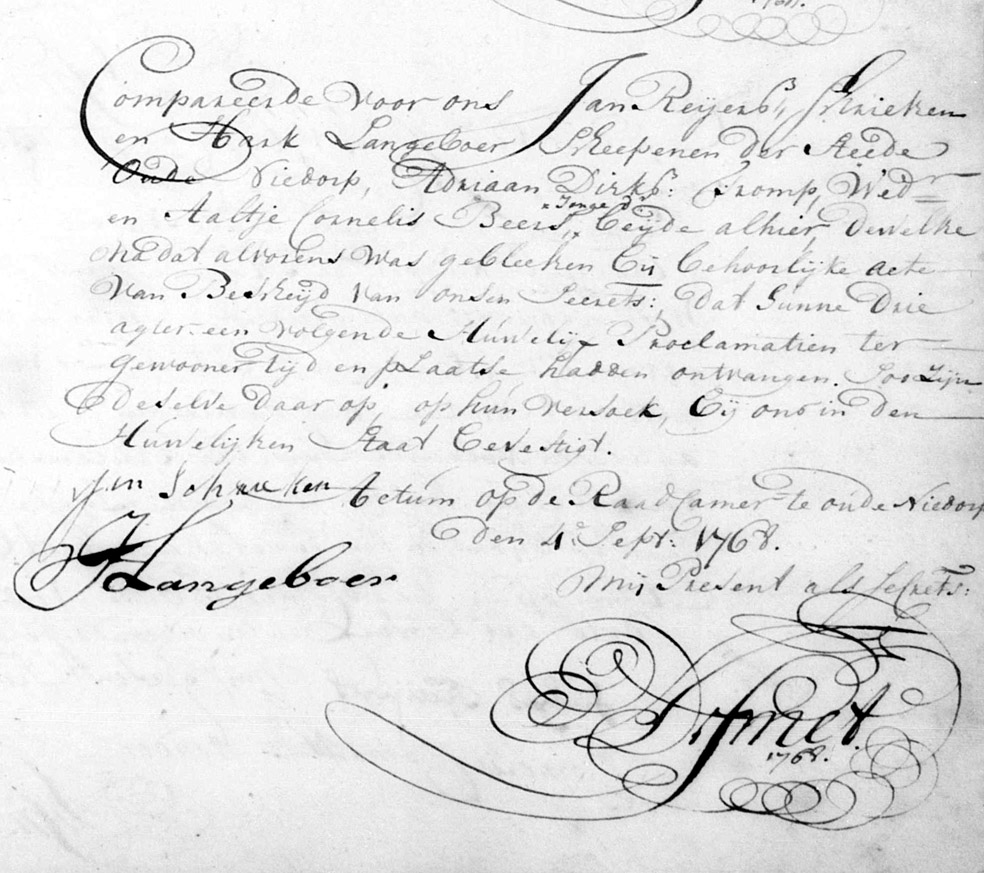 1768.
Compareerde voor ons Jan Reijersz, Schrieken
en Hark Langeboer Scheepenen der Steede
Oude Niedorp, Adriaan Dirksz: Tromp, Wedr
x Jonge dr
en Aaltje Cornelis Beers, x beijde alhier, dewelke
nadat alvorens was gebleeken bij behoorlijke acte
van Bescheijd van onsen Secrets: dat hunne drie
agter-een volgende Huwelijx Proclamatien ter
gewooner tijd en plaatse hadden ontvangen. Soo Zijn
deselve daar op, op hun versoek, bij ons in den
Huwelijken Staat bevestigt.
Jan Schrieken Actum op de Raad Camer te oude Niedorp
den 4e Sept: 1768.
HLangeboer
Mij Present als Secrets:
Smet.
1768.